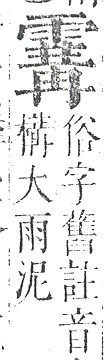 俗字舊註音
構大雨泥